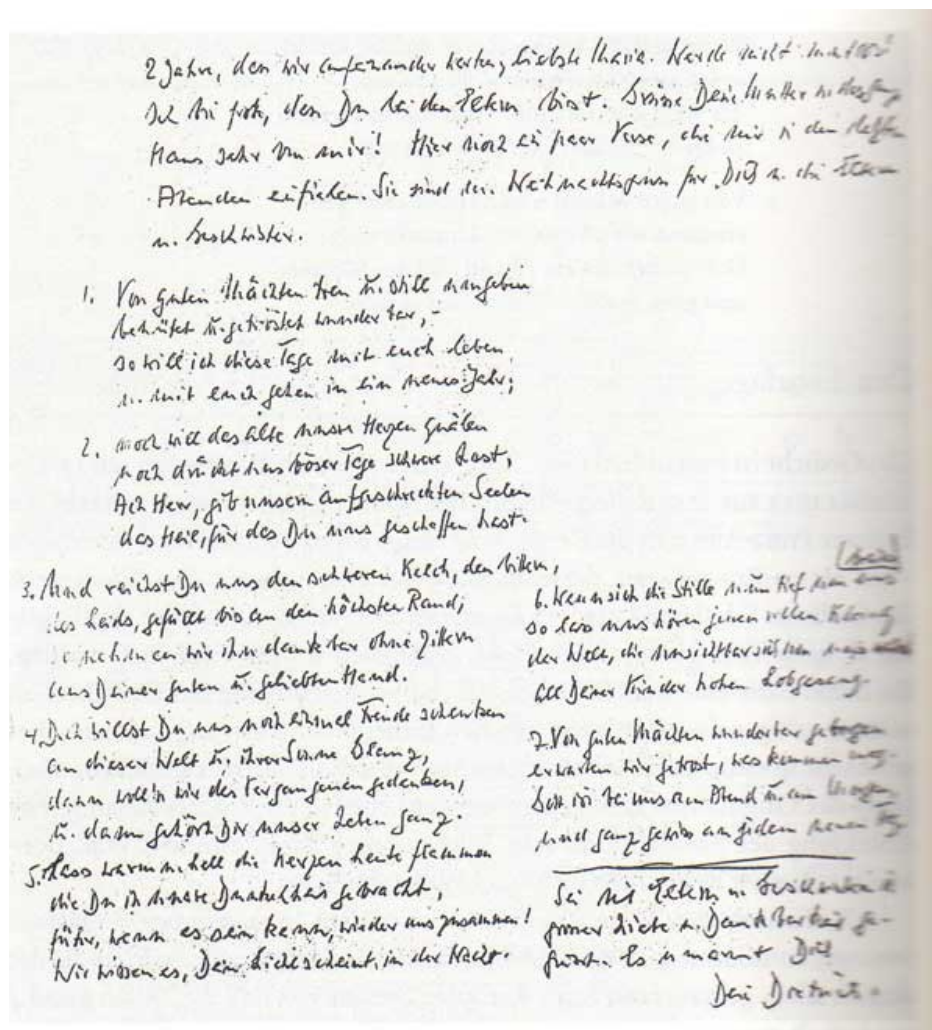 2 Jahre, dass wir aufeinander warten, liebste Maria. Werde nicht mutlos!
Ich bin froh, dass Du bei den Eltern bist. Grüsse Deine Mutter u. das ganze
Haus sehr von mir! Hier noch ein paar Verse, die mir in den letzten
Abenden einfielen. Sie sind der Weihnachtsgruss für Dich u. die Eltern
u. Geschwister.
1. Von guten Mächten treu u. still umgeben
behütet u. getröstet wunderbar, –
so will ich diese Tage mit euch leben
u. mit euch gehen in ein neues Jahr;
2. noch will das alte unsre Herzen quälen
noch drückt uns böser Tage schwere Last,
Ach Herr, gib unsern aufgeschreckten Seelen
das Heil, für das Du uns geschaffen hast.
3. Und reichst Du uns den schweren Kelch, den bittern,
des Leids, gefüllt bis an den höchsten Rand,
so nehmen wir ihn dankbar ohne Zittern
aus Deiner guten u. geliebten Hand.
4. Doch willst Du uns noch einmal Freude schenken
an dieser Welt u. ihrer Sonne Glanz,
dann woll'n wir des Vergangenen gedenken,
u. dann gehört Dir unser Leben ganz.
5. Lass warm u. hell die Kerzen heute flammen
die Du in unsre Dunkelheit gebracht,
führ, wenn es sein kann, wieder uns zusammen!
Wir wissen es, Dein Licht scheint in der Nacht.
6. Wenn sich die Stille nun tief um uns
breitet
so lass uns hören jenen vollen Klang
der Welt, die unsichtbar sich um uns weitet
all Deiner Kinder hohen Lobgesang.
7. Von guten Mächten wunderbar geborgen
erwarten wir getrost, was kommen mag.
Gott ist bei uns am Abend u. am Morgen
und ganz gewiss an jedem neuen Tag.
Sei mit Eltern u. Geschwistern in
grosser Liebe u. Dankbarkeit ge-
grüsst. Es umarmt Dich
Dein Dietrich